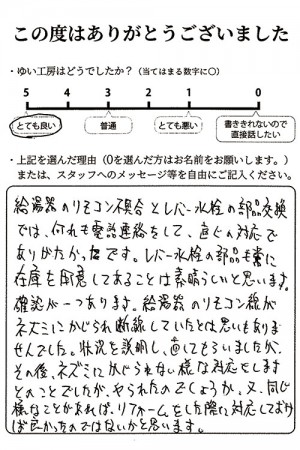 この度はありがとうございました
・ゆい工房はどうでしたか?(当てはまる数字に○)
5 4 3 2 1 0
とても良い 普通 とても悪い 書ききれないので直接話したい
・上記を選んだ理由(0を選んだ方はお名前をお願いします。)
または、スタッフへのメッセージ等を自由にご記入ください。
給湯器のリモコン不具合とレバー水栓の部品交換
では、何れも電話連絡をして、直ぐの対応で
ありがたかったです。レバー水栓の部品も常に
在庫を用意してあることは素晴らしいと思います。
確認が一つあります。給湯器のリモコン線が
ネズミにかじられ断線していたとは思いもありま
せんでした。状況を説明し、直してもらいましたが、
その後、ネズミにかじられない様な対応をします
とのことでしたが、やられたのでしょうか。又、同じ
様なことがあれば、リフォームをした際に対応しておけ
ば良かったのではないかと思います。